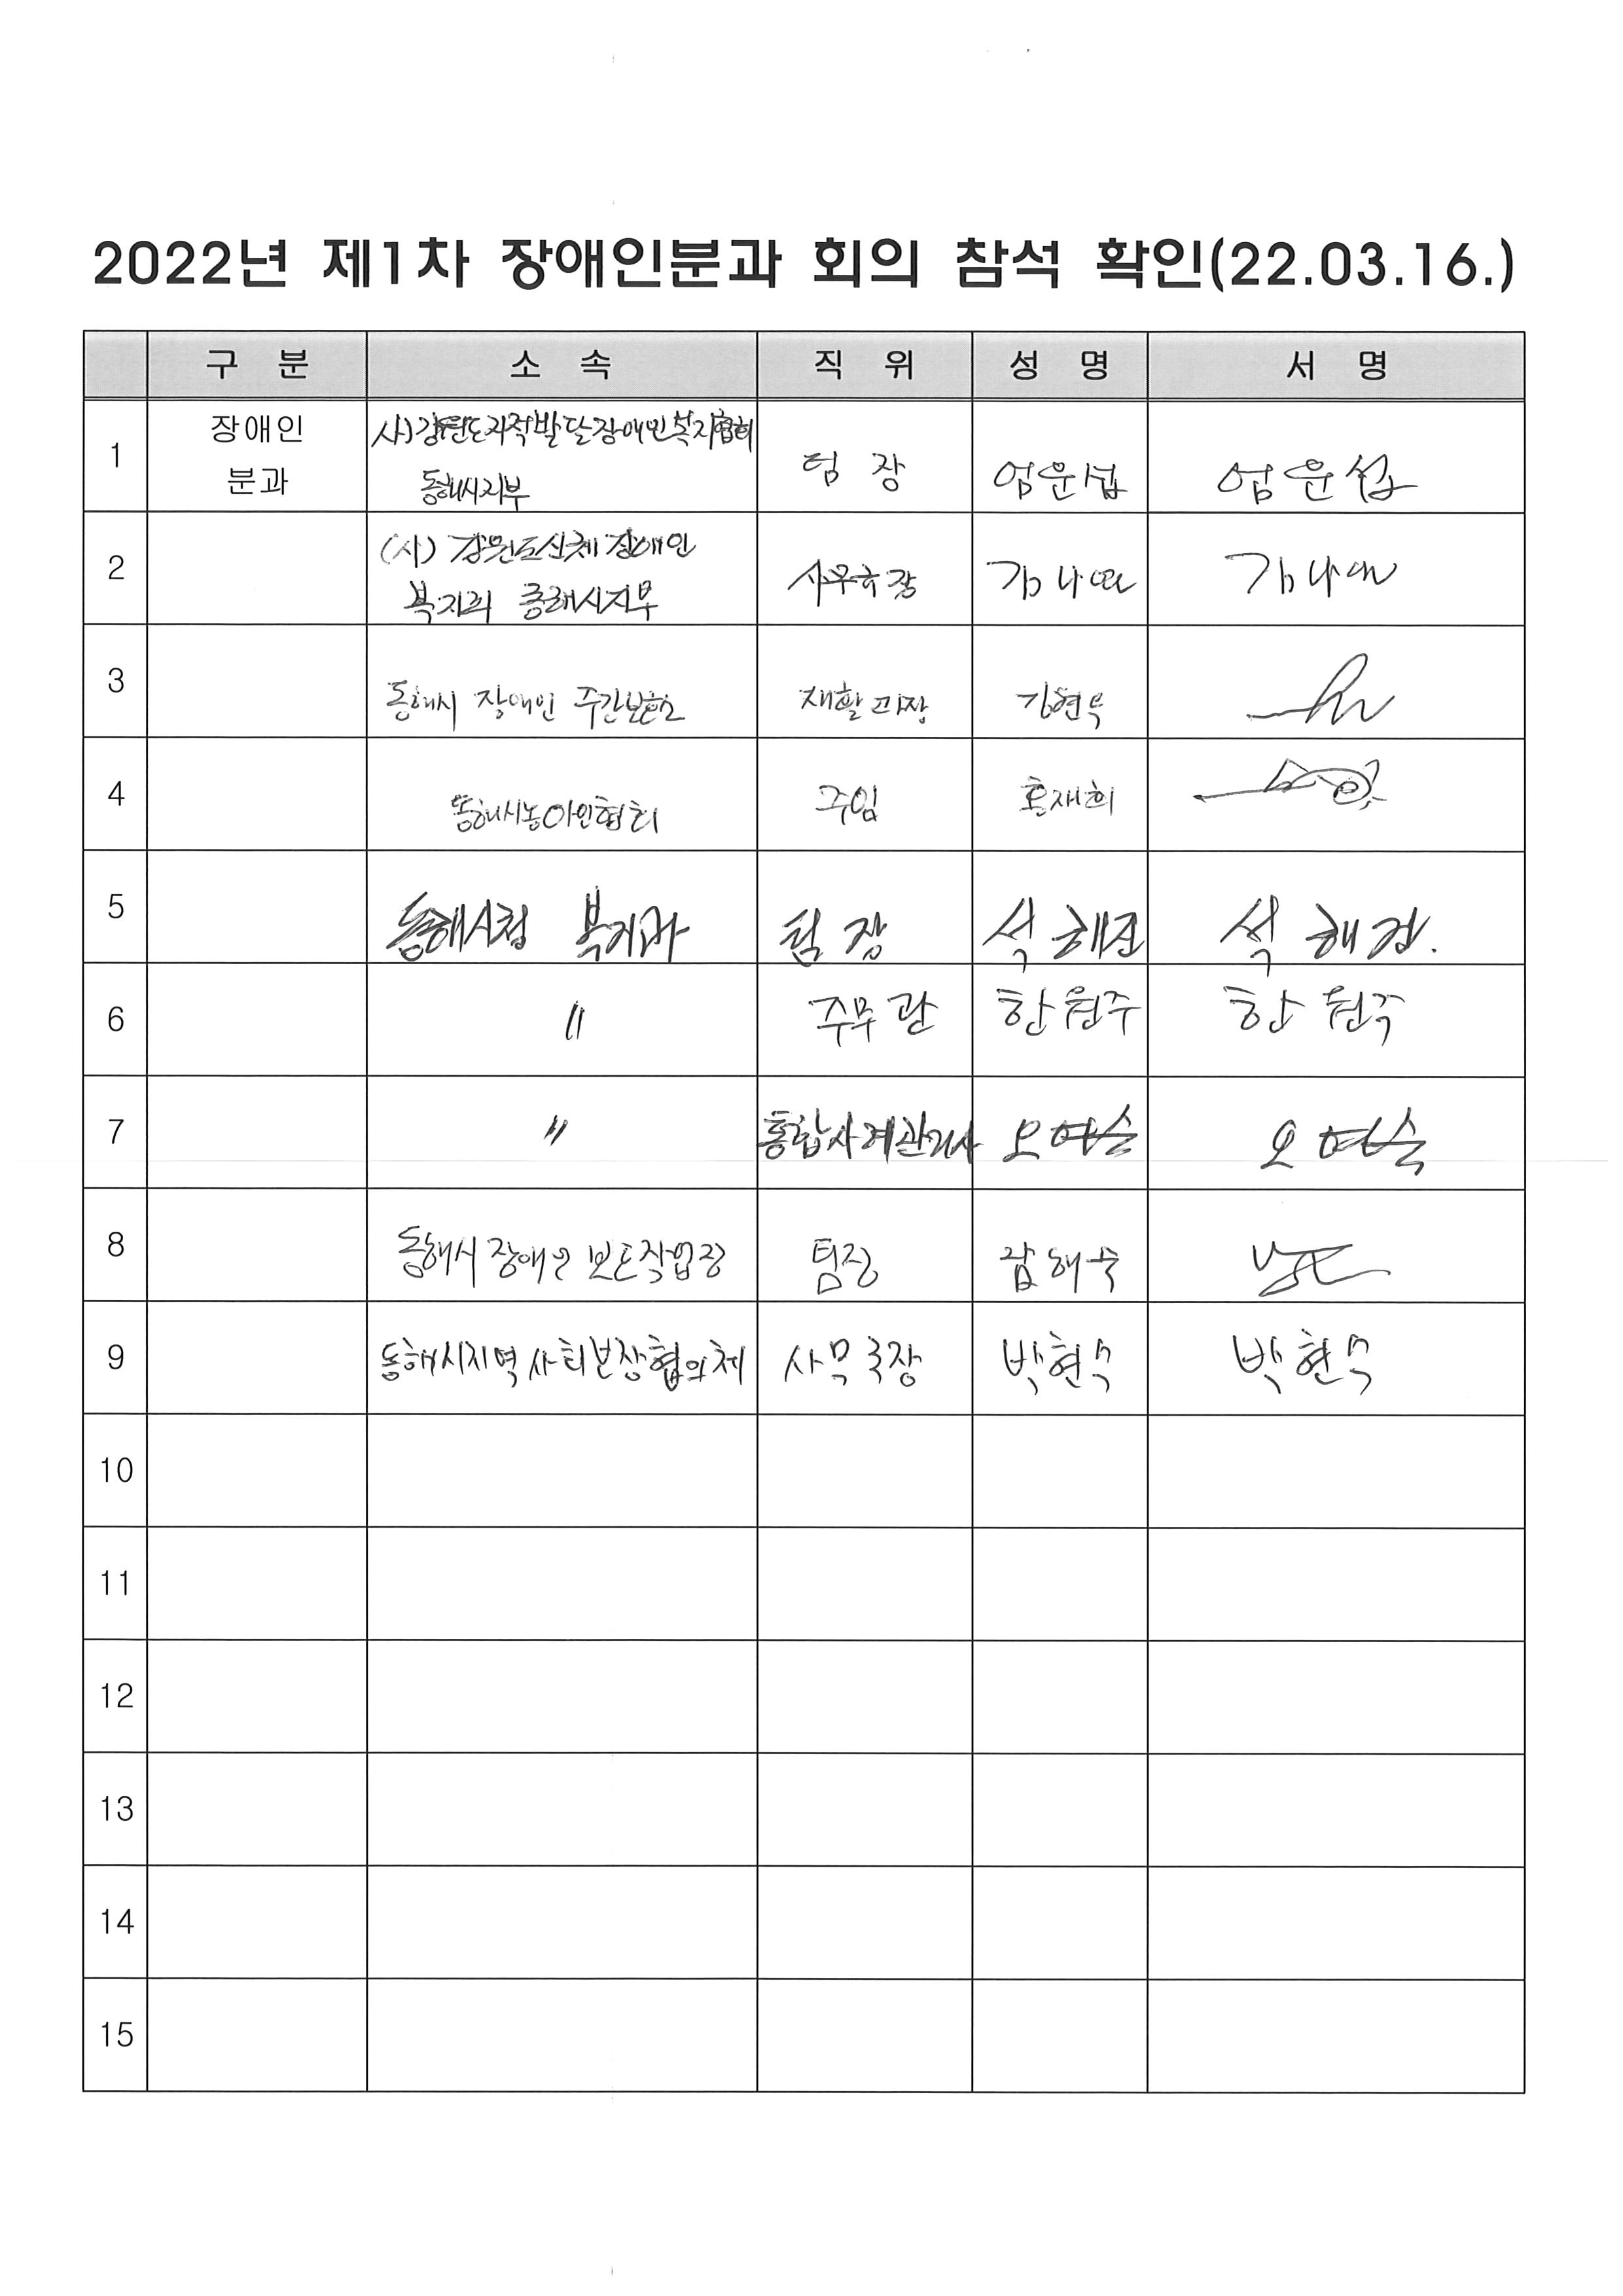 2022년 제1차 장애인분과 회의 참석 확인(22.03.16.)
구 분 소 속 직 위 성 명 서 명
1 장애인 분과 사)강원도지적발달장애인복지협회 동해시지부 팀 장 엄윤섭 엄윤섭
2 (사) 강원도신체장애인 복지회 동해시지부 사무국장 김나연 김나연
3 동해시 장애인 주간보호소 재활과장 김현욱
4 동해시농아인협회 주임 홍재희
5 동해시청 복지과 팀 장 석해진 석해진.
6 〃 주무관 한원주 한원주
7 〃 통합사례관리사 오여슬 오여슬
8 동해시 장애인 보호작업장 팀장 해숙
9 동해시지역사회보장협의체 사무국장 박현수 박현수
10
11
12
13
14
15